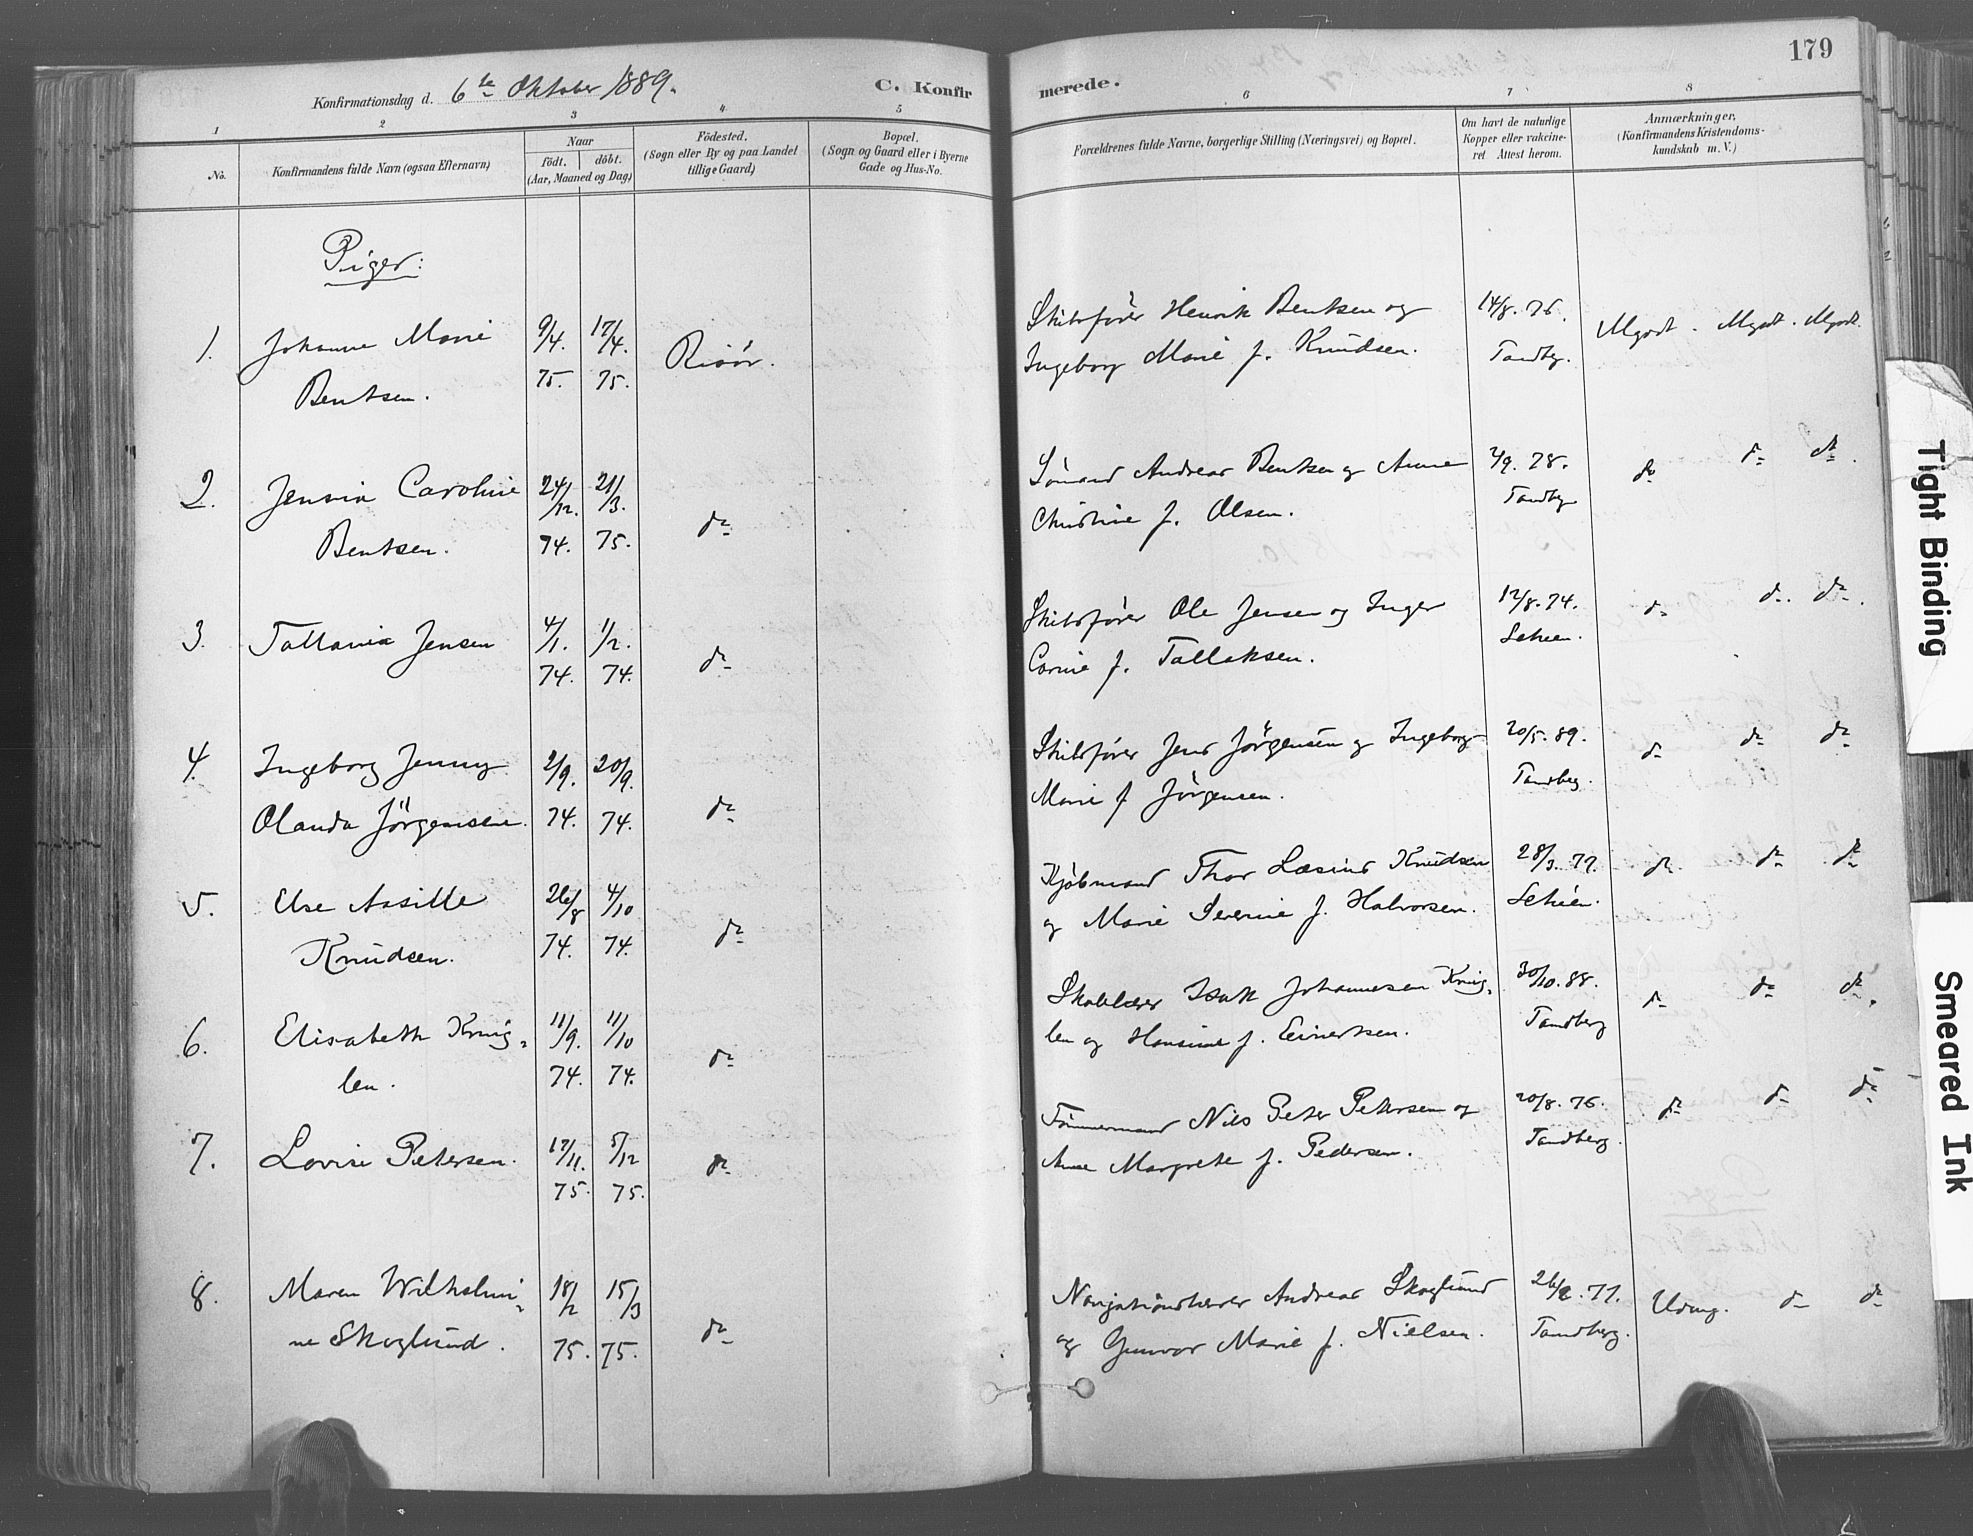 179
Konfirmationsdag d. 6te Oktober 1889.
C. Konfirmerede.
1 2 3 4 5 6 7 8
No.
Konfirmandens fulde Navn (ogsaa Efternavn)
Naar
födt. döbt.
(Aar, Maaned og Dag)
Födested.
(Sogn eller By og paa Landet
tillige Gaard)
Bopæl.
(Sogn og Gaard eller i Byerne
Gade og Hus-No.
Forældrenes fulde Navne, borgerlige Stilling (Næringsvei) og Bopæl.
Om havt de naturlige
Kopper eller vakcine-
ret Attest herom.
Anmærkninger,
(Konfirmandens Kristendoms-
kundskab m. V.)
Piger:
1. Johanne Marie 9/4. 17/4. Risör. Skibsfører Henrik Bentsen og 14/8. 76. Mgodt. Mgodt. Mgodt.
Bentsen. 75. 75. Ingeborg Marie f. Knudsen. Tandbg.
2. Jensia Caroline 24/12. 21/3. do Sömand Andreas Bentsen og Anne 2/9. 78. do do do.
Bentsen. 74. 75. Christine f. Olsen. Tandbg
3. Tallania Jensen 4/1. 1/2. do Skibsfører Ole Jensen og Inger 12/8. 74. do do. do.
74. 74. Corine f. Tallaksen. Scheen.
4. Ingeborg Jenny 2/9. 20/9. do Skibsfører Jens Jörgensen og Ingeborg 20/5. 89. do do do
Olanda Jörgensen. 74. 74. Marie f Jörgensen. Tandberg.
5. Else Assille 26/8 4/10 do Kjöbmand Thor Læsius Knudsen 28/3. 77. do. do do
Knudsen. 74. 74. og Marie Severine f. Halvorsen. Scheen.
6. Elisabeth Krøg- 11/9. 11/10 do Skolelærer Isak Johannesen 30/10. 88. do do do.
len. 74. 74. len og Hansine f. Einertsen. Tandberg
7. Lovise Petersen. 17/11. 5/12 do Tömmermand Nils Peter Petersen og 20/8. 76. do do do
75. 75. Anne Margrete f. Pedersen. Tandberg.
8. Maren Wilhelmi- 18/2 15/3 do Navigationslærer Andreas Skoglund 26/2. 77. Udmg. do do
ne Skoglund. 75. 75. og Gunvor Marie f. Nielsen. Tandberg.
Tight Binding
Smeared Ink